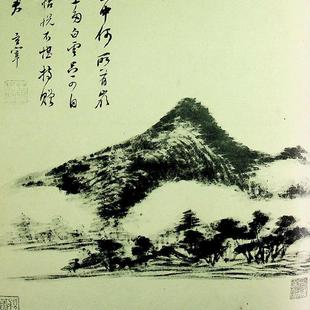 中何所有嶺
上多白雲只可自
怡悅不堪持贈
君 玄宰